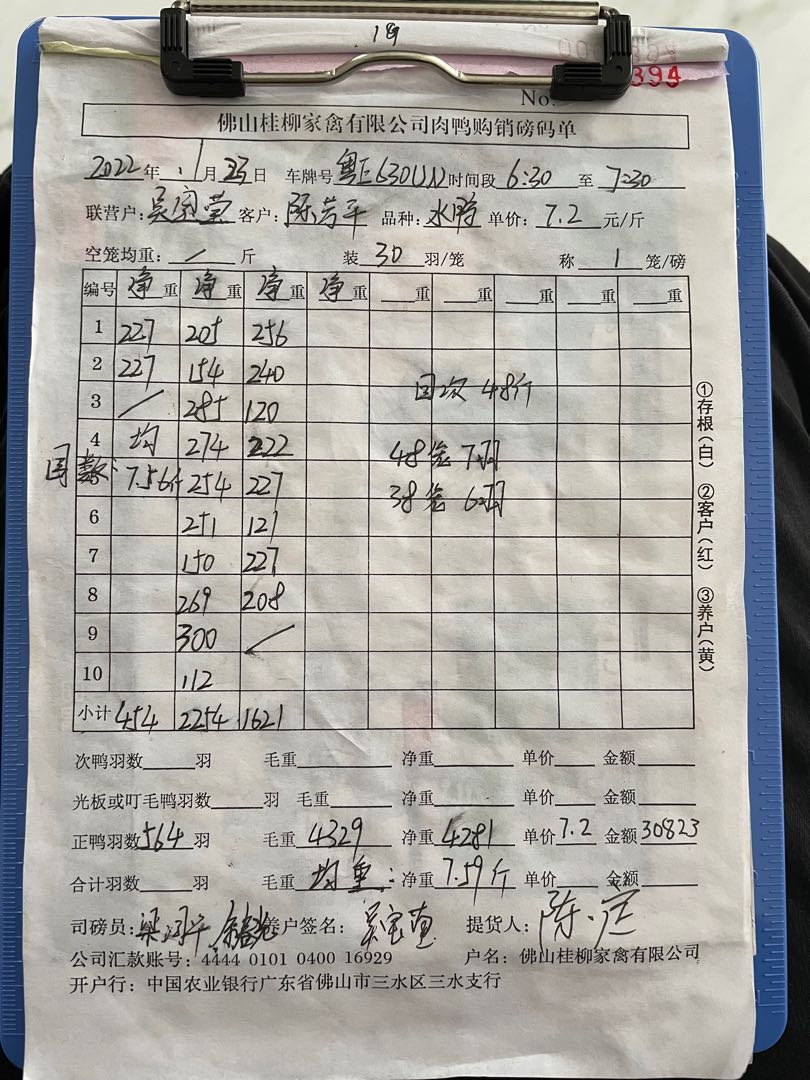 19
394
No.
佛山桂柳家禽有限公司肉鸭购销磅码单
2022年 1月23日 车牌号 粤E630UN 时间段 6:30 至 7:30
联营户: 客户: 陈芳平 品种: 水鸭 单价: 7.2 元/斤
空笼均重: / 斤 装 30 羽/笼 称 1 笼/磅
编号 净重 净重 净重 净重 重 重 重 重 重
1 227 205 256
2 227 154 240
回次 48斤
3 / 285 120
4 均 274 222
48笼 7羽
5 7.56斤 254 227
38笼 6羽
6 251 121
7 150 227
8 269 208
9 300 /
10 112
小计 454 2254 1621
①存根(白) ②客户(红) ③养户(黄)
次鸭羽数 羽 毛重 净重 单价 金额
光板或叮毛鸭羽数 羽 毛重 净重 单价 金额
正鸭羽数 564 羽 毛重 4329 净重 4281 单价 7.2 金额 30823
合计羽数 羽 毛重 均重: 净重 7.59斤 单价 金额
司磅员: 养户签名: 提货人:
公司汇款账号: 4444 0101 0400 16929 户名: 佛山桂柳家禽有限公司
开户行: 中国农业银行广东省佛山市三水区三水支行